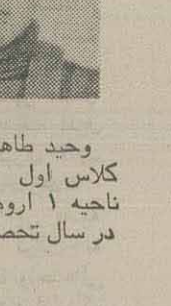 وحید طاه
کلاس اول
ناحیه ۱ اروم
در سال تحص